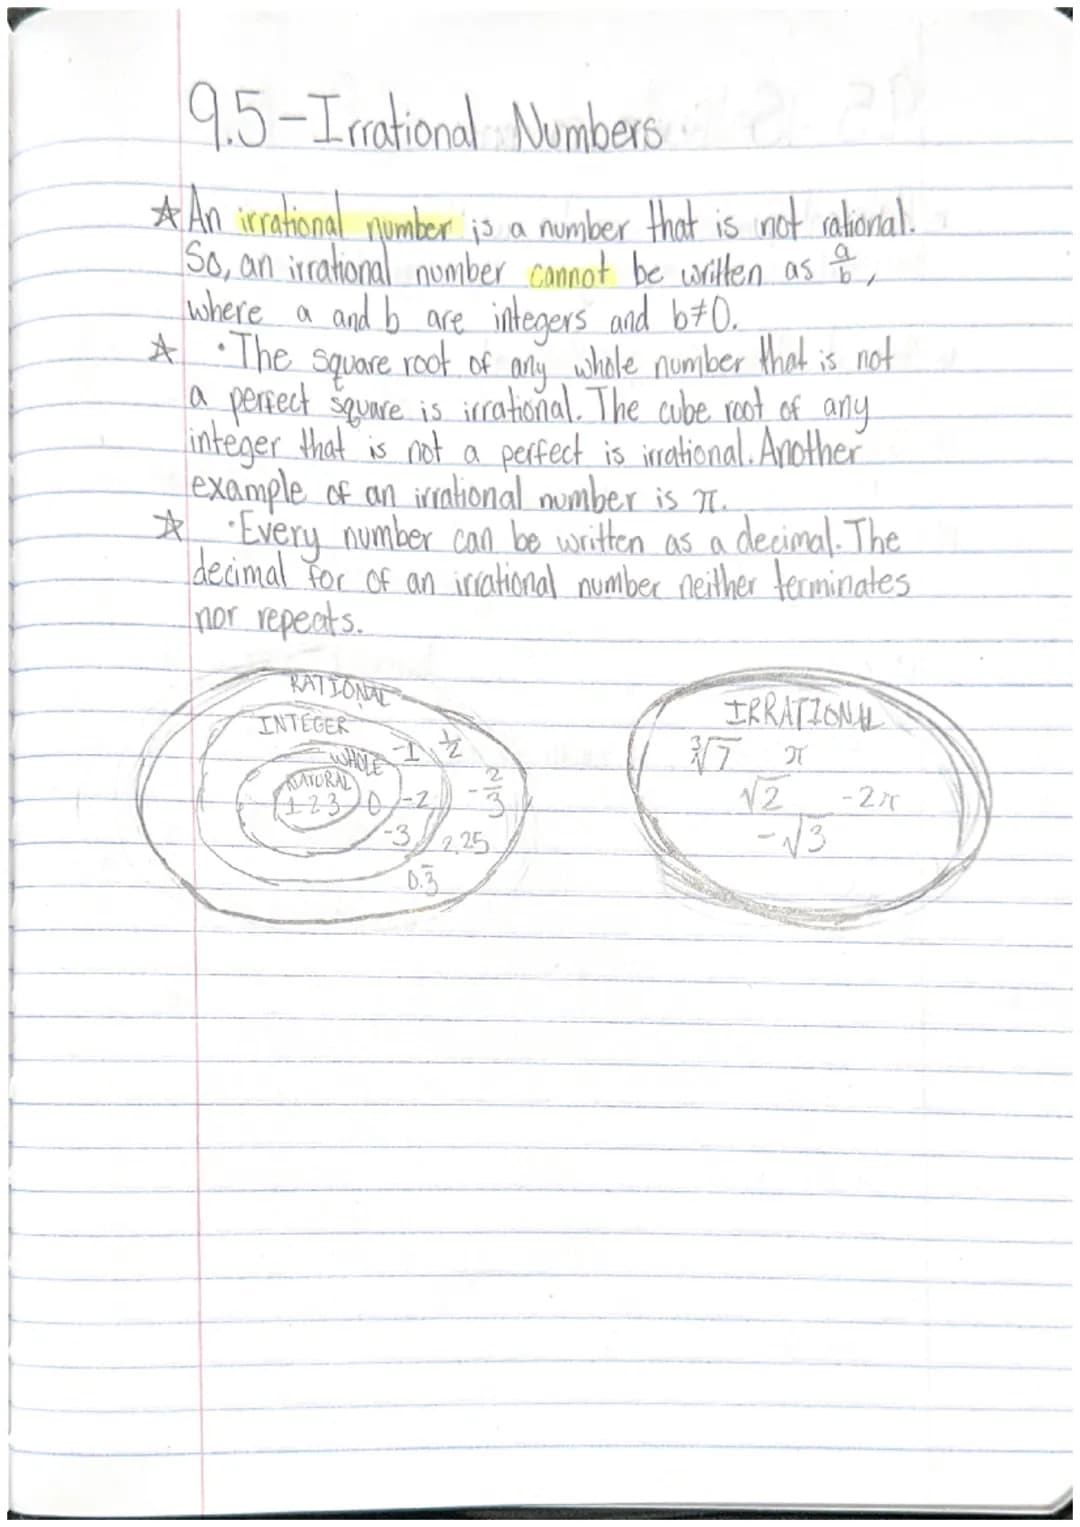 9.5-Irrational Numbers
☆ An irrational number is a number that is not rational.
So, an irrational number cannot be written as a/b,
where a and b are integers and b≠0.
☆ •The square root of any whole number that is not
a perfect square is irrational. The cube root of any
integer that is not a perfect is irrational. Another
example of an irrational number is π.
☆ •Every number can be written as a decimal. The
decimal for of an irrational number neither terminates
nor repeats.
RATIONAL
INTEGER
WHOLE -1 1/2
NATURAL
1 2 3 0 -2 -2/3
-3 2.25
0.3̅
IRRATIONAL
∛7 π
√2 -2π
-√3